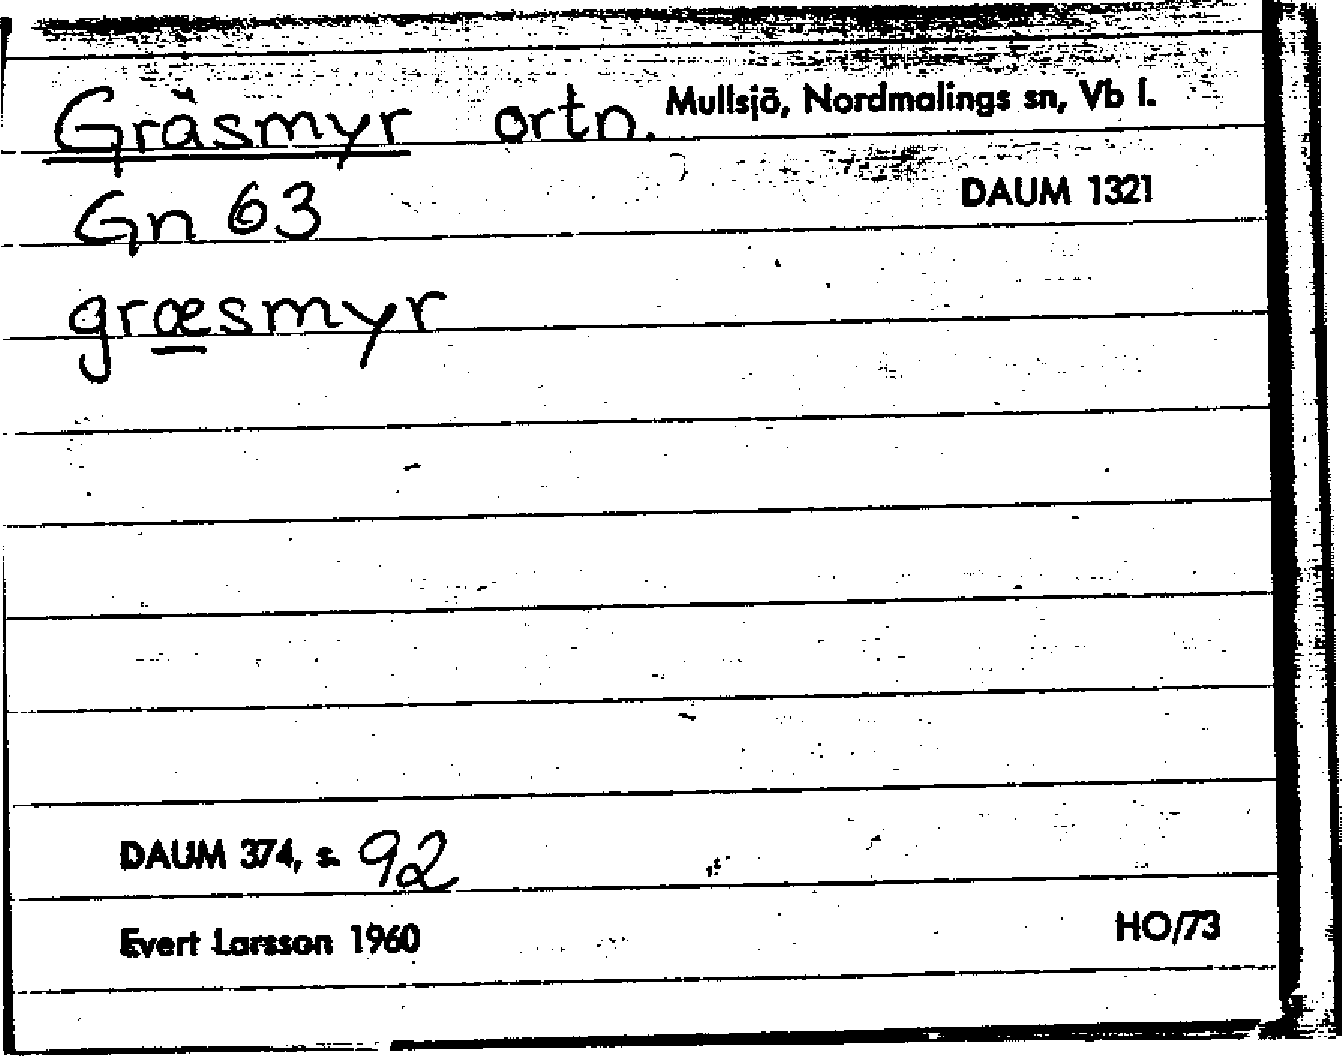 Gräsmyr ortn. Mullsjö, Nordmalings sn, Vb l.
Gn 63 DAUM 1321
græsmyr
DAUM 374, s. 92
Evert Larsson 1960 HO/73